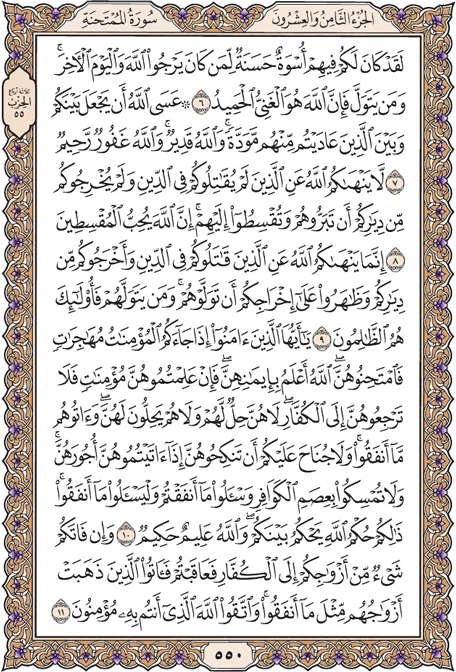 الجزء الثامن والعشرون
سورة الممتحنة
ثلاثة أرباع
الحزب
٥٥
لَقَدْ كَانَ لَكُمْ فِيهِمْ أُسْوَةٌ حَسَنَةٌ لِّمَن كَانَ يَرْجُوا۟ ٱللَّهَ وَٱلْيَوْمَ ٱلْـَٔاخِرَ ۚ
وَمَن يَتَوَلَّ فَإِنَّ ٱللَّهَ هُوَ ٱلْغَنِىُّ ٱلْحَمِيدُ ٦ ۞ عَسَى ٱللَّهُ أَن يَجْعَلَ بَيْنَكُمْ
وَبَيْنَ ٱلَّذِينَ عَادَيْتُم مِّنْهُم مَّوَدَّةً ۚ وَٱللَّهُ قَدِيرٌ ۚ وَٱللَّهُ غَفُورٌ رَّحِيمٌ
٧ لَّا يَنْهَىٰكُمُ ٱللَّهُ عَنِ ٱلَّذِينَ لَمْ يُقَـٰتِلُوكُمْ فِى ٱلدِّينِ وَلَمْ يُخْرِجُوكُم
مِّن دِيَـٰرِكُمْ أَن تَبَرُّوهُمْ وَتُقْسِطُوٓا۟ إِلَيْهِمْ ۚ إِنَّ ٱللَّهَ يُحِبُّ ٱلْمُقْسِطِينَ
٨ إِنَّمَا يَنْهَىٰكُمُ ٱللَّهُ عَنِ ٱلَّذِينَ قَـٰتَلُوكُمْ فِى ٱلدِّينِ وَأَخْرَجُوكُم مِّن
دِيَـٰرِكُمْ وَظَـٰهَرُوا۟ عَلَىٰٓ إِخْرَاجِكُمْ أَن تَوَلَّوْهُمْ ۚ وَمَن يَتَوَلَّهُمْ فَأُو۟لَـٰٓئِكَ
هُمُ ٱلظَّـٰلِمُونَ ٩ يَـٰٓأَيُّهَا ٱلَّذِينَ ءَامَنُوٓا۟ إِذَا جَآءَكُمُ ٱلْمُؤْمِنَـٰتُ مُهَـٰجِرَٰتٍ
فَٱمْتَحِنُوهُنَّ ۖ ٱللَّهُ أَعْلَمُ بِإِيمَـٰنِهِنَّ ۖ فَإِنْ عَلِمْتُمُوهُنَّ مُؤْمِنَـٰتٍ فَلَا
تَرْجِعُوهُنَّ إِلَى ٱلْكُفَّارِ ۖ لَا هُنَّ حِلٌّ لَّهُمْ وَلَا هُمْ يَحِلُّونَ لَهُنَّ ۖ وَءَاتُوهُم
مَّآ أَنفَقُوا۟ ۚ وَلَا جُنَاحَ عَلَيْكُمْ أَن تَنكِحُوهُنَّ إِذَآ ءَاتَيْتُمُوهُنَّ أُجُورَهُنَّ ۚ
وَلَا تُمْسِكُوا۟ بِعِصَمِ ٱلْكَوَافِرِ وَسْـَٔلُوا۟ مَآ أَنفَقْتُمْ وَلْيَسْـَٔلُوا۟ مَآ أَنفَقُوا۟ ۚ
ذَٰلِكُمْ حُكْمُ ٱللَّهِ ۖ يَحْكُمُ بَيْنَكُمْ ۚ وَٱللَّهُ عَلِيمٌ حَكِيمٌ ١٠ وَإِن فَاتَكُمْ
شَىْءٌ مِّنْ أَزْوَٰجِكُمْ إِلَى ٱلْكُفَّارِ فَعَاقَبْتُمْ فَـَٔاتُوا۟ ٱلَّذِينَ ذَهَبَتْ
أَزْوَٰجُهُم مِّثْلَ مَآ أَنفَقُوا۟ ۚ وَٱتَّقُوا۟ ٱللَّهَ ٱلَّذِىٓ أَنتُم بِهِۦ مُؤْمِنُونَ ١١
٥٥٠